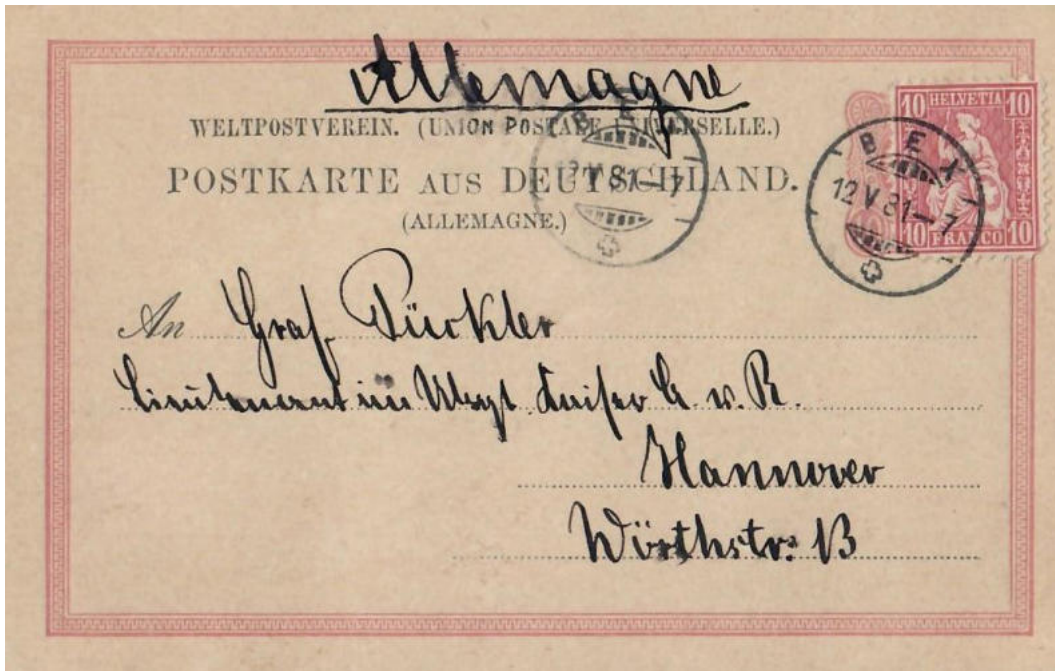 Allemagne
WELTPOSTVEREIN. (UNION POSTALE UNIVERSELLE.)
POSTKARTE AUS DEUTSCHLAND.
(ALLEMAGNE.)
10 HELVETIA 10
10 FRANCO 10
BEX
12 V 81–7
BEX
12 V 81–7
An Graf Pückler
Lieutenant im Ulrgt Kaiser A. v. R.
Hannover
Wörthstr. 13